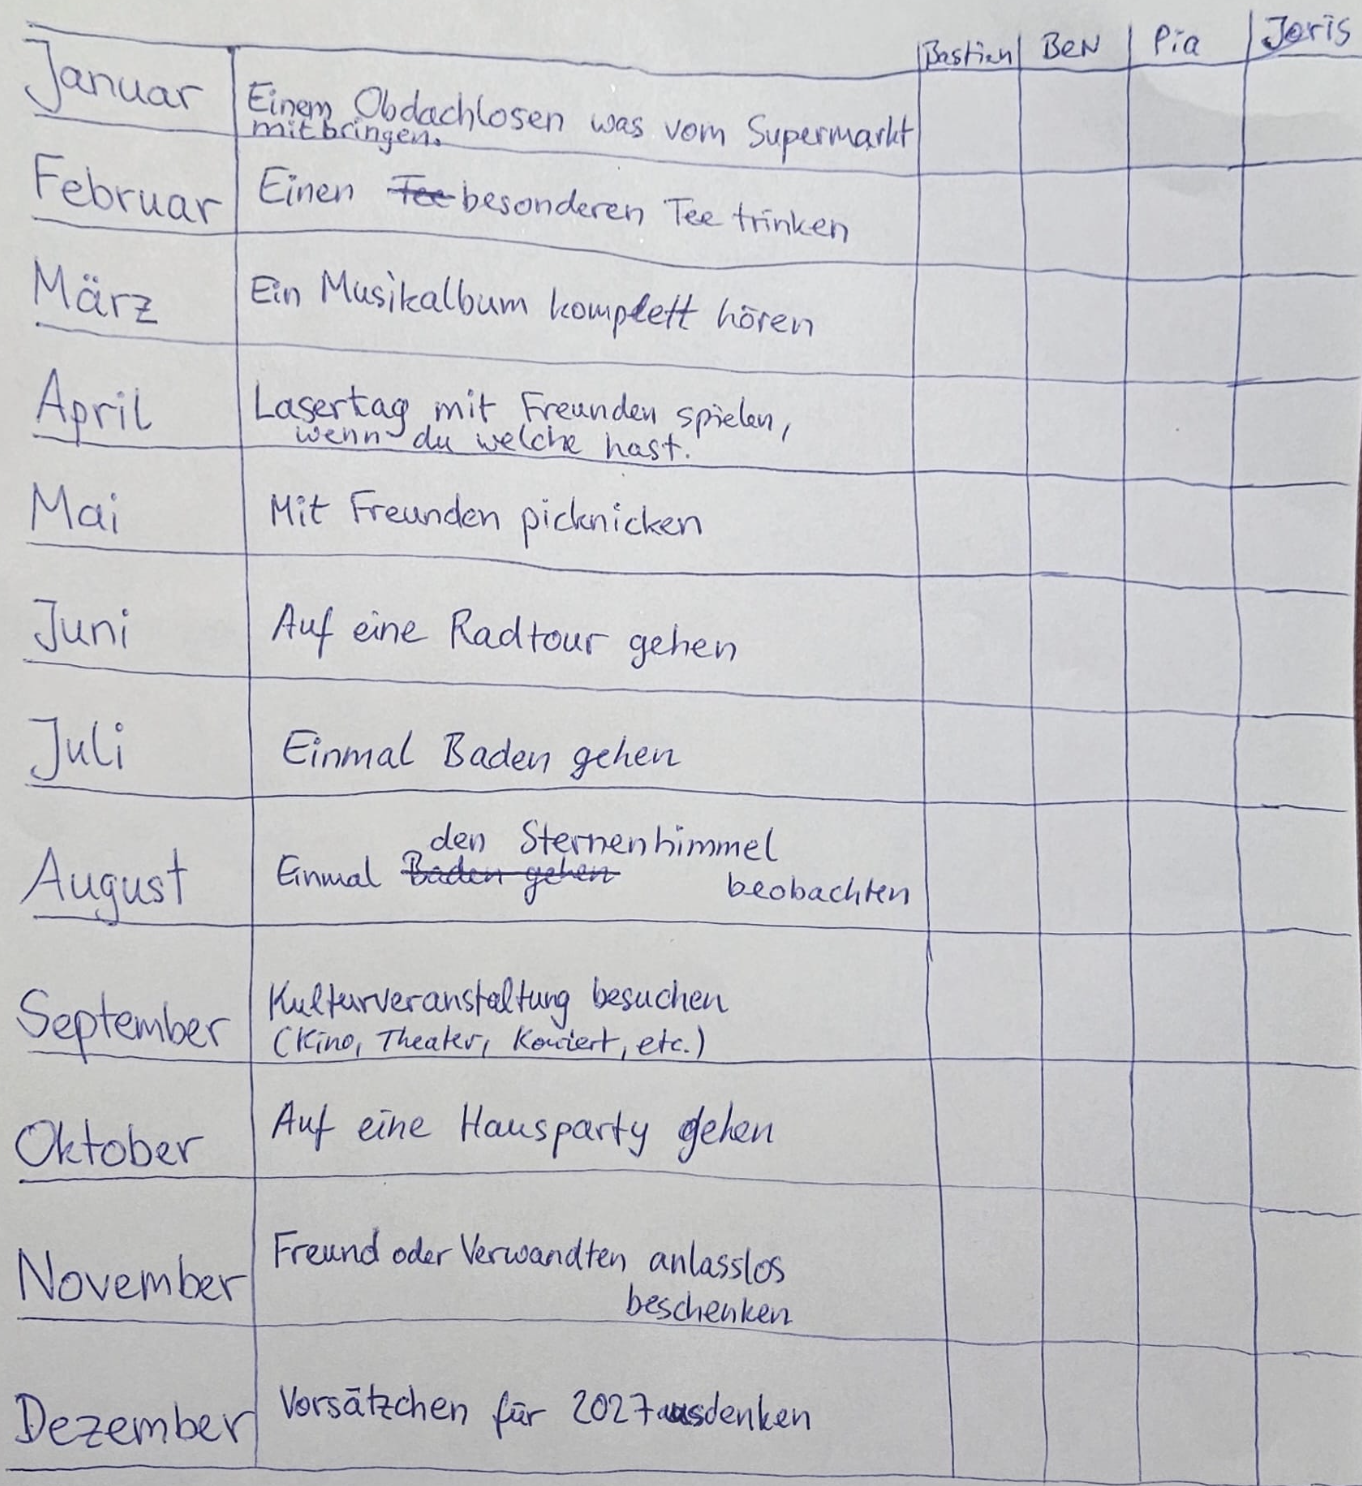 Bastian BeN Pia Joris
Januar
Einem Obdachlosen was vom Supermarkt
mitbringen.
Februar
Einen Tee besonderen Tee trinken
März
Ein Musikalbum komplett hören
April
Lasertag mit Freunden spielen,
wenn du welche hast.
Mai
Mit Freunden picknicken
Juni
Auf eine Radtour gehen
Juli
Einmal Baden gehen
August
den Sternenhimmel
Einmal Baden gehen beobachten
September
Kulturveranstaltung besuchen
(Kino, Theater, Konzert, etc.)
Oktober
Auf eine Hausparty gehen
November
Freund oder Verwandten anlasslos
beschenken
Dezember
Vorsätzchen für 2027 ausdenken